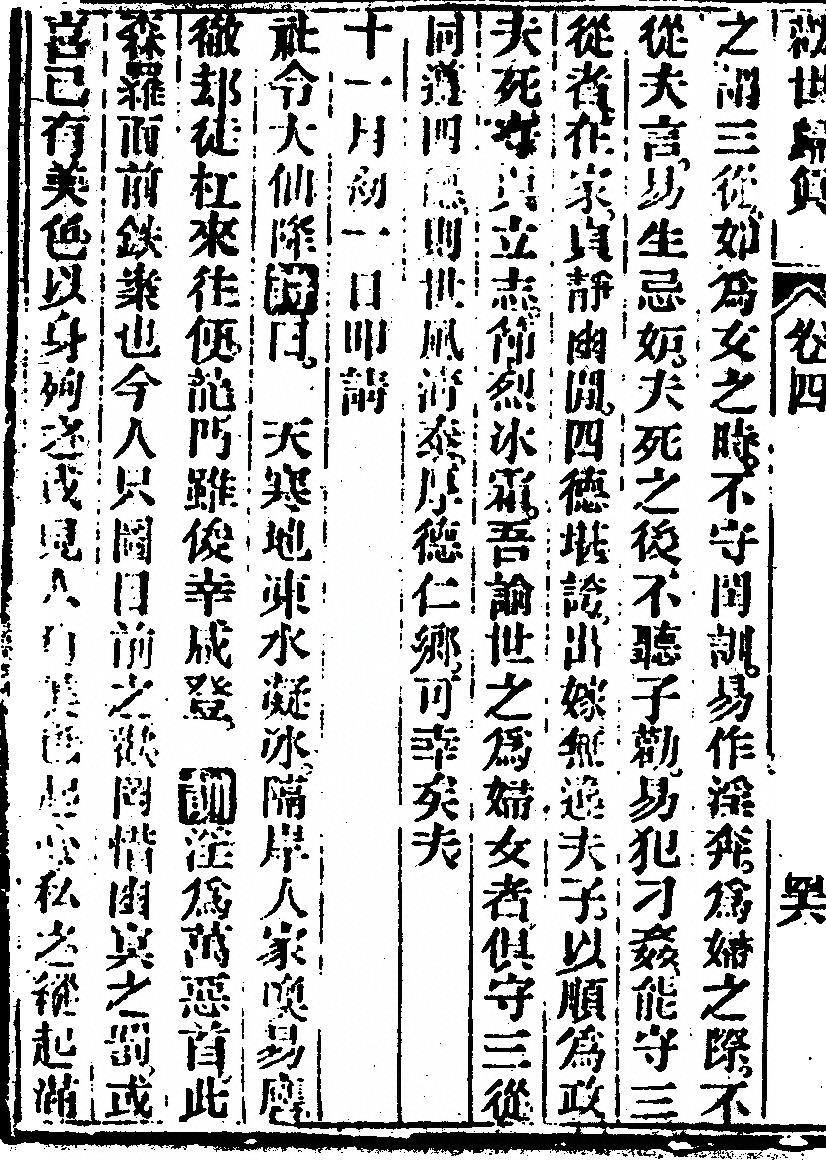 勸世歸真 卷四
之謂三從如為女之時不守閨訓易作淫奔為婦之際不
從夫言易生忌妬夫死之後不聽子勸易犯刁姦能守三
從者在家貞靜幽閒四德堪誇出嫁無違夫子以順為政
夫死守真立志節烈冰霜吾諭世之為婦女者俱守三從
同遵四德則世風清泰厚德仁鄉可幸矣夫
十一月初一日叩請
社令大仙降詩曰 天寒地凍水凝冰隔岸人家喚易
徹却徒杠來往便龍門雖俊幸咸登 訓淫為萬惡首此
森羅面前鉄案也今人只圖目前之歡罔惜幽冥之罰或
喜己有美色以身殉之或見人有美色起念私之縱起滿